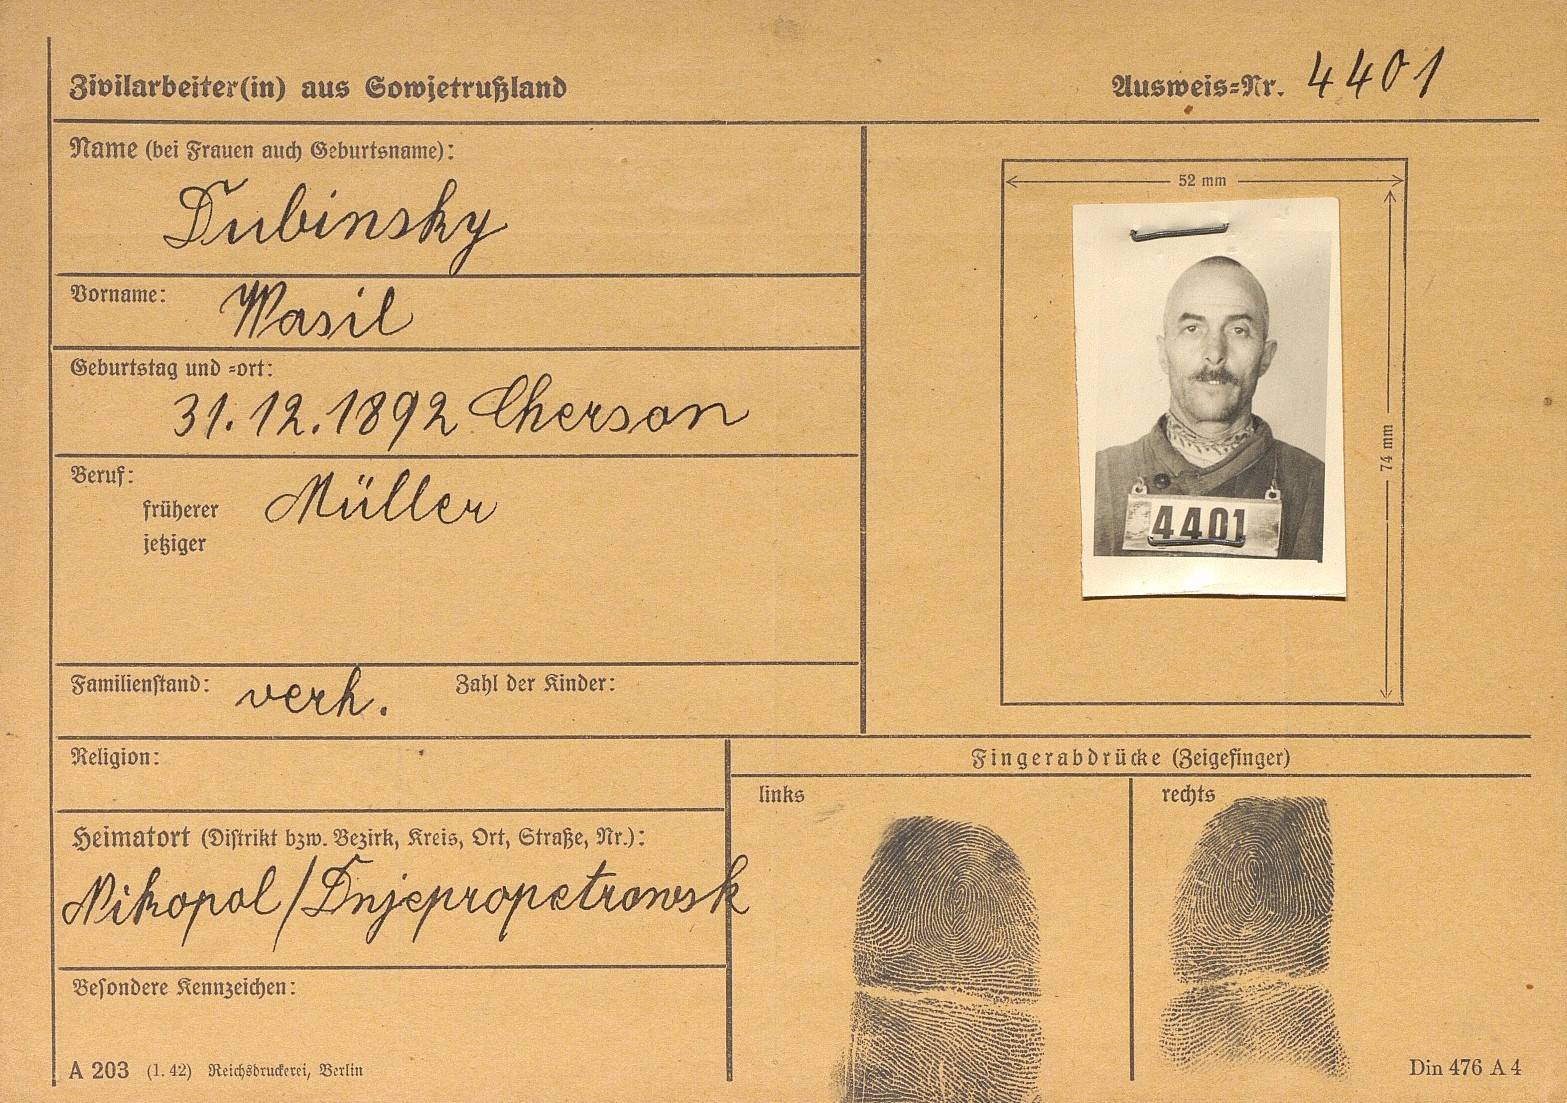 Zivilarbeiter(in) aus Sowjetrußland
Ausweis=Nr. 4401
Name (bei Frauen auch Geburtsname):
Dubinsky
Vorname: Wasil
Geburtstag und =ort:
31.12.1892 Cherson
Beruf:
früherer Müller
jetziger
Familienstand: verh. Zahl der Kinder:
52 mm
74 mm
4401
Religion:
Heimatort (Distrikt bzw. Bezirk, Kreis, Ort, Straße, Nr.):
Nikopol / Dnjepropetrowsk
Besondere Kennzeichen:
Fingerabdrücke (Zeigefinger)
links
rechts
A 203 (1. 42) Reichsdruckerei, Berlin
Din 476 A 4